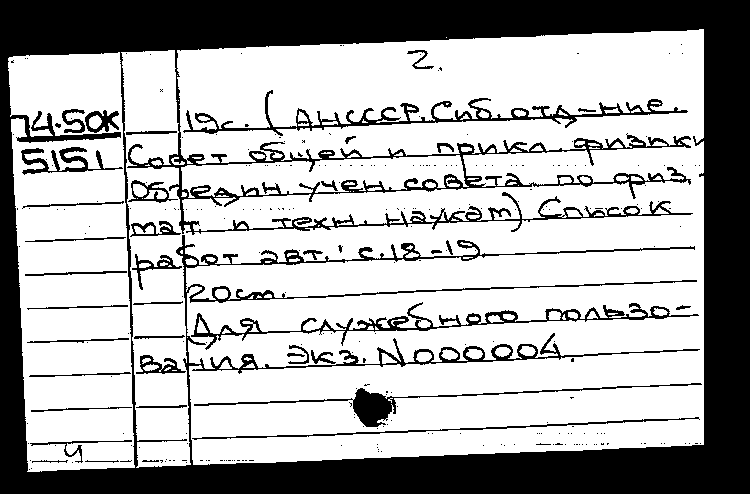 2.
74.50К 19с. (АНСССР. Сиб. отд-ние.
5151 Совет общей и прикл. физики
Объедин. учен. совета по физ.-
мат. и техн. наукам) Список
работ авт.: с.18-19.
20см.
Для служебного пользо-
вания. Экз. N000004.
ч